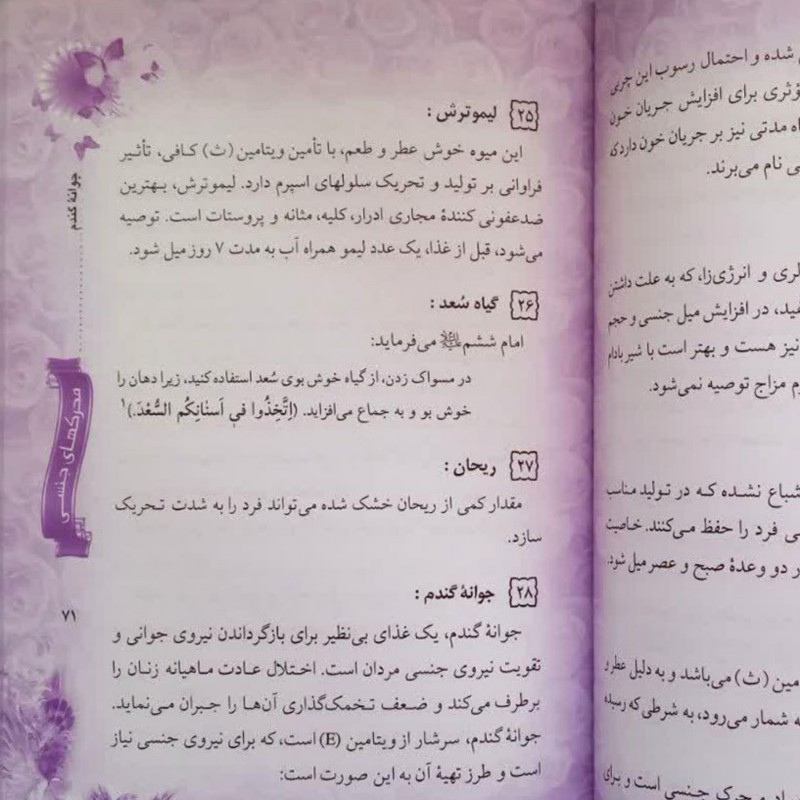 ۲۵ لیموترش :
این میوه خوش عطر و طعم، با تأمین ویتامین (ث) کافی، تأثیر
فراوانی بر تولید و تحریک سلولهای اسپرم دارد. لیموترش، بهترین
ضدعفونی کنندهٔ مجاری ادرار، کلیه، مثانه و پروستات است. توصیه
می‌شود، قبل از غذا، یک عدد لیمو همراه آب به مدت ۷ روز میل شود.
۲۶ گیاه سُعد :
امام ششم می‌فرماید:
در مسواک زدن، از گیاه خوش بوی سُعد استفاده کنید، زیرا دهان را
خوش بو و به جماع می‌افزاید. (اِتَّخِذُوا فی اَسنٰانِکُم السُّعْدَ.)۱
۲۷ ریحان :
مقدار کمی از ریحان خشک شده می‌تواند فرد را به شدت تحریک
سازد.
۲۸ جوانهٔ گندم :
جوانهٔ گندم، یک غذای بی‌نظیر برای بازگرداندن نیروی جوانی و
تقویت نیروی جنسی مردان است. اختلال عادت ماهیانه زنان را
برطرف می‌کند و ضعف تخمک‌گذاری آن‌ها را جبران می‌نماید.
جوانهٔ گندم، سرشار از ویتامین (E) است، که برای نیروی جنسی نیاز
است و طرز تهیهٔ آن به این صورت است:
جوانهٔ گندم
محرکهای جنسی
۷۱
شده و احتمال رسوب این چربی
ؤثری برای افزایش جریان خون
اه مدتی نیز بر جریان خون دارد که
ی نام می‌برند.
لری و انرژی‌زا، که به علت داشتن
فید، در افزایش میل جنسی و حجم
نیز هست و بهتر است با شیر بادام
م مزاج توصیه نمی‌شود.
شباع نشده که در تولید مناسب
ی فرد را حفظ می‌کنند. خاصیت
ر دو وعدهٔ صبح و عصر میل شود.
مین (ث) می‌باشد و به دلیل عطر و
ه شمار می‌رود، به شرطی که رسیده
محرک جنسی است و برای